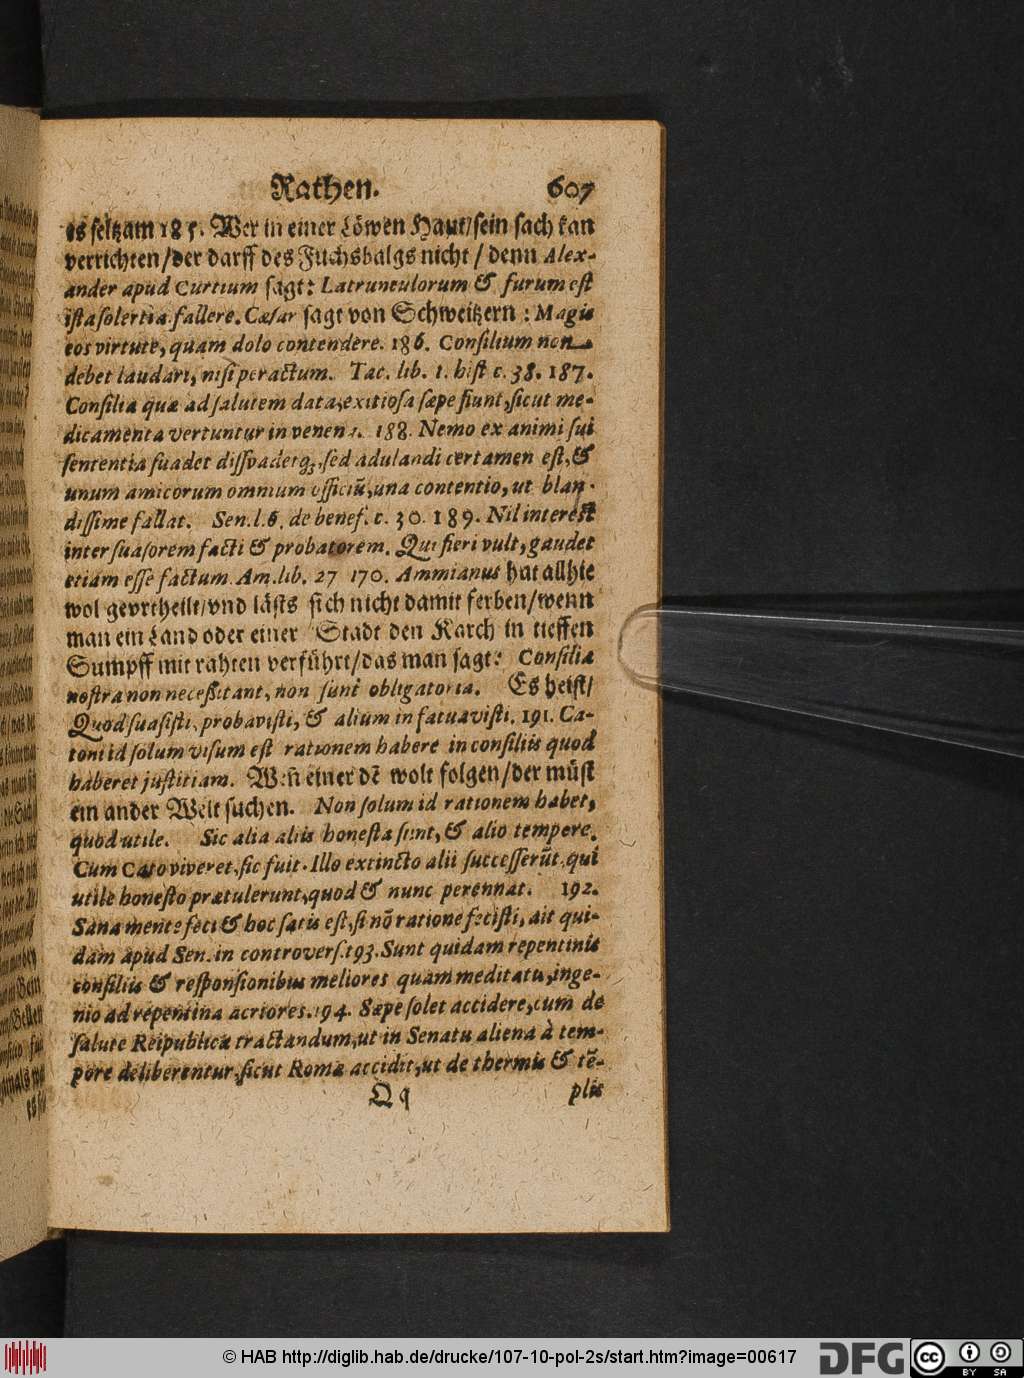 Rathen. 607
es seltzam 185. Wer in einer Löwen Haut/sein sach kan
verrichten/der darff des Fuchsbalgs nicht / denn Alex-
ander apud Curtium sagt: Latrunculorum & furum est
ista solertia fallere. Cæsar sagt von Schweitzern : Magis
eos virtute, quam dolo contendere. 186. Consilium non
debet laudari, nisi peractum. Tac. lib. 1. hist c. 38. 187.
Consilia quæ ad salutem data, exitiosa sæpe fiunt, sicut me-
dicamenta vertuntur in venena. 188. Nemo ex animi sui
sententia suadet dissvadetq;, sed adulandi certamen est, &
unum amicorum omnium officiũ, una contentio, ut blan-
dissime fallat. Sen. l. 6. de benef. c. 30. 189. Nil interest
inter suasorem facti & probatorem. Qui fieri vult, gaudet
etiam esse factum. Am. lib. 27 170. Ammianus hat allhie
wol gevrtheilt/vnd lästs sich nicht damit ferben/wenn
man ein Land oder einer Stadt den Karch in tieffen
Sumpff mit rahten verführt/das man sagt: Consilia
nostra non necessitant, non sunt obligatoria. Es heist/
Quod suasisti, probavisti, & alium infatuavisti. 191. Ca-
toni id solum visum est rationem habere in consiliis quod
haberet justitiam. Weñ einer dē wolt folgen/der müst
ein ander Welt suchen. Non solum id rationem habet,
quod utile. Sic alia aliis honesta sunt, & alio tempere.
Cum Cato viveret, sic fuit. Illo extincto alii successerũt, qui
utile honesto prætulerunt, quod & nunc perennat. 192.
Sana mente feci & hoc satis est, si nõ ratione fecisti, ait qui-
dam apud Sen. in controvers. 193. Sunt quidam repentinis
consiliis & responsionibus meliores quam meditatis, inge-
nio ad repentina acriores. 194. Sæpe solet accidere, cum de
salute Reipublicæ tractandum, ut in Senatu aliena à tem-
pore deliberentur, sicut Romæ accidit, ut de thermis & tẽ-
Qq plis
© HAB http://diglib.hab.de/drucke/107-10-pol-2s/start.htm?image=00617
DFG
cc BY SA